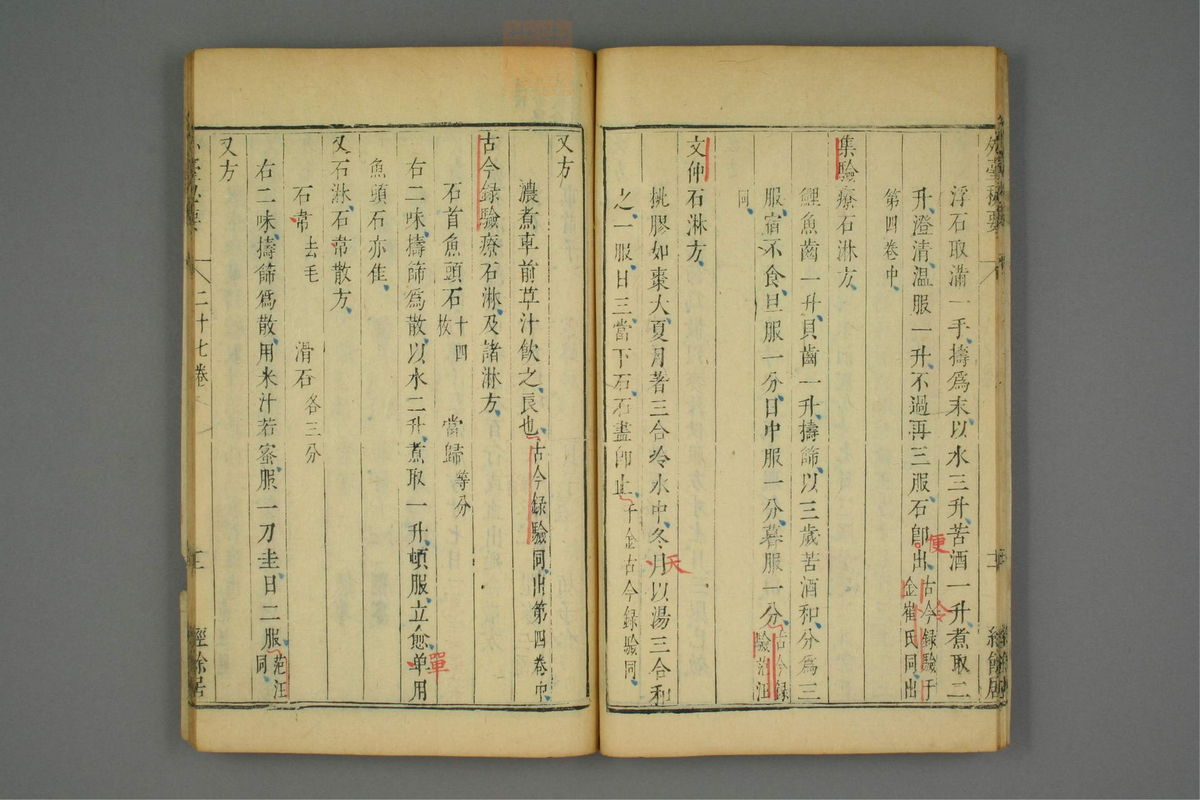 外臺秘要
經餘居
浮石取滿一手擣爲末以水三升苦酒一升煮取二
升澄清溫服一升不過再三服石卽出古今録驗千金崔氏同出
便
令
第四卷中
集驗療石淋方
鯉魚齒一升貝齒一升擣篩以三歲苦酒和分爲三
服宿不食旦服一分日中服一分暮服一分古今録驗范汪
同
文仲石淋方
桃膠如棗大夏月著三合冷水中冬月以湯三合和
天
之一服日三當下石石盡卽止千金古今録驗同
又方
濃煮車前草汁飲之良也古今録驗同出第四卷中
古今録驗療石淋及諸淋方
石首魚頭石十四枚 當歸等分
右二味擣篩爲散以水二升煮取一升頓服立愈单用
單
魚頭石亦佳
又石淋石韋散方
石韋去毛 滑石各三分
右二味擣篩爲散用米汁若蜜服一刀圭日二服范汪同
又方
外臺秘要 二十七卷 經餘居